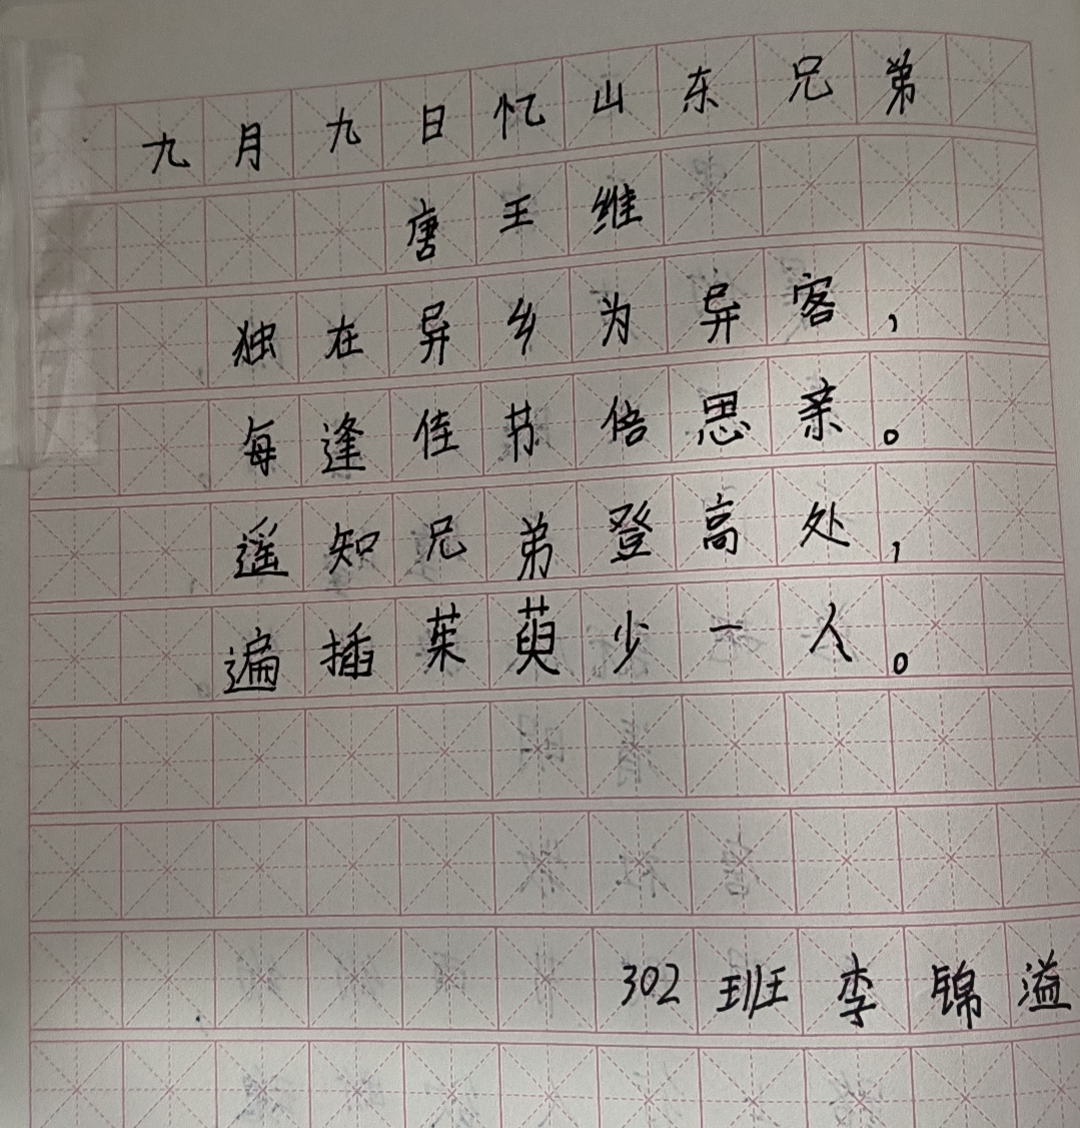 九月九日忆山东兄弟
唐王维
独在异乡为异客，
每逢佳节倍思亲。
遥知兄弟登高处，
遍插茱萸少一人。
302班李锦溢